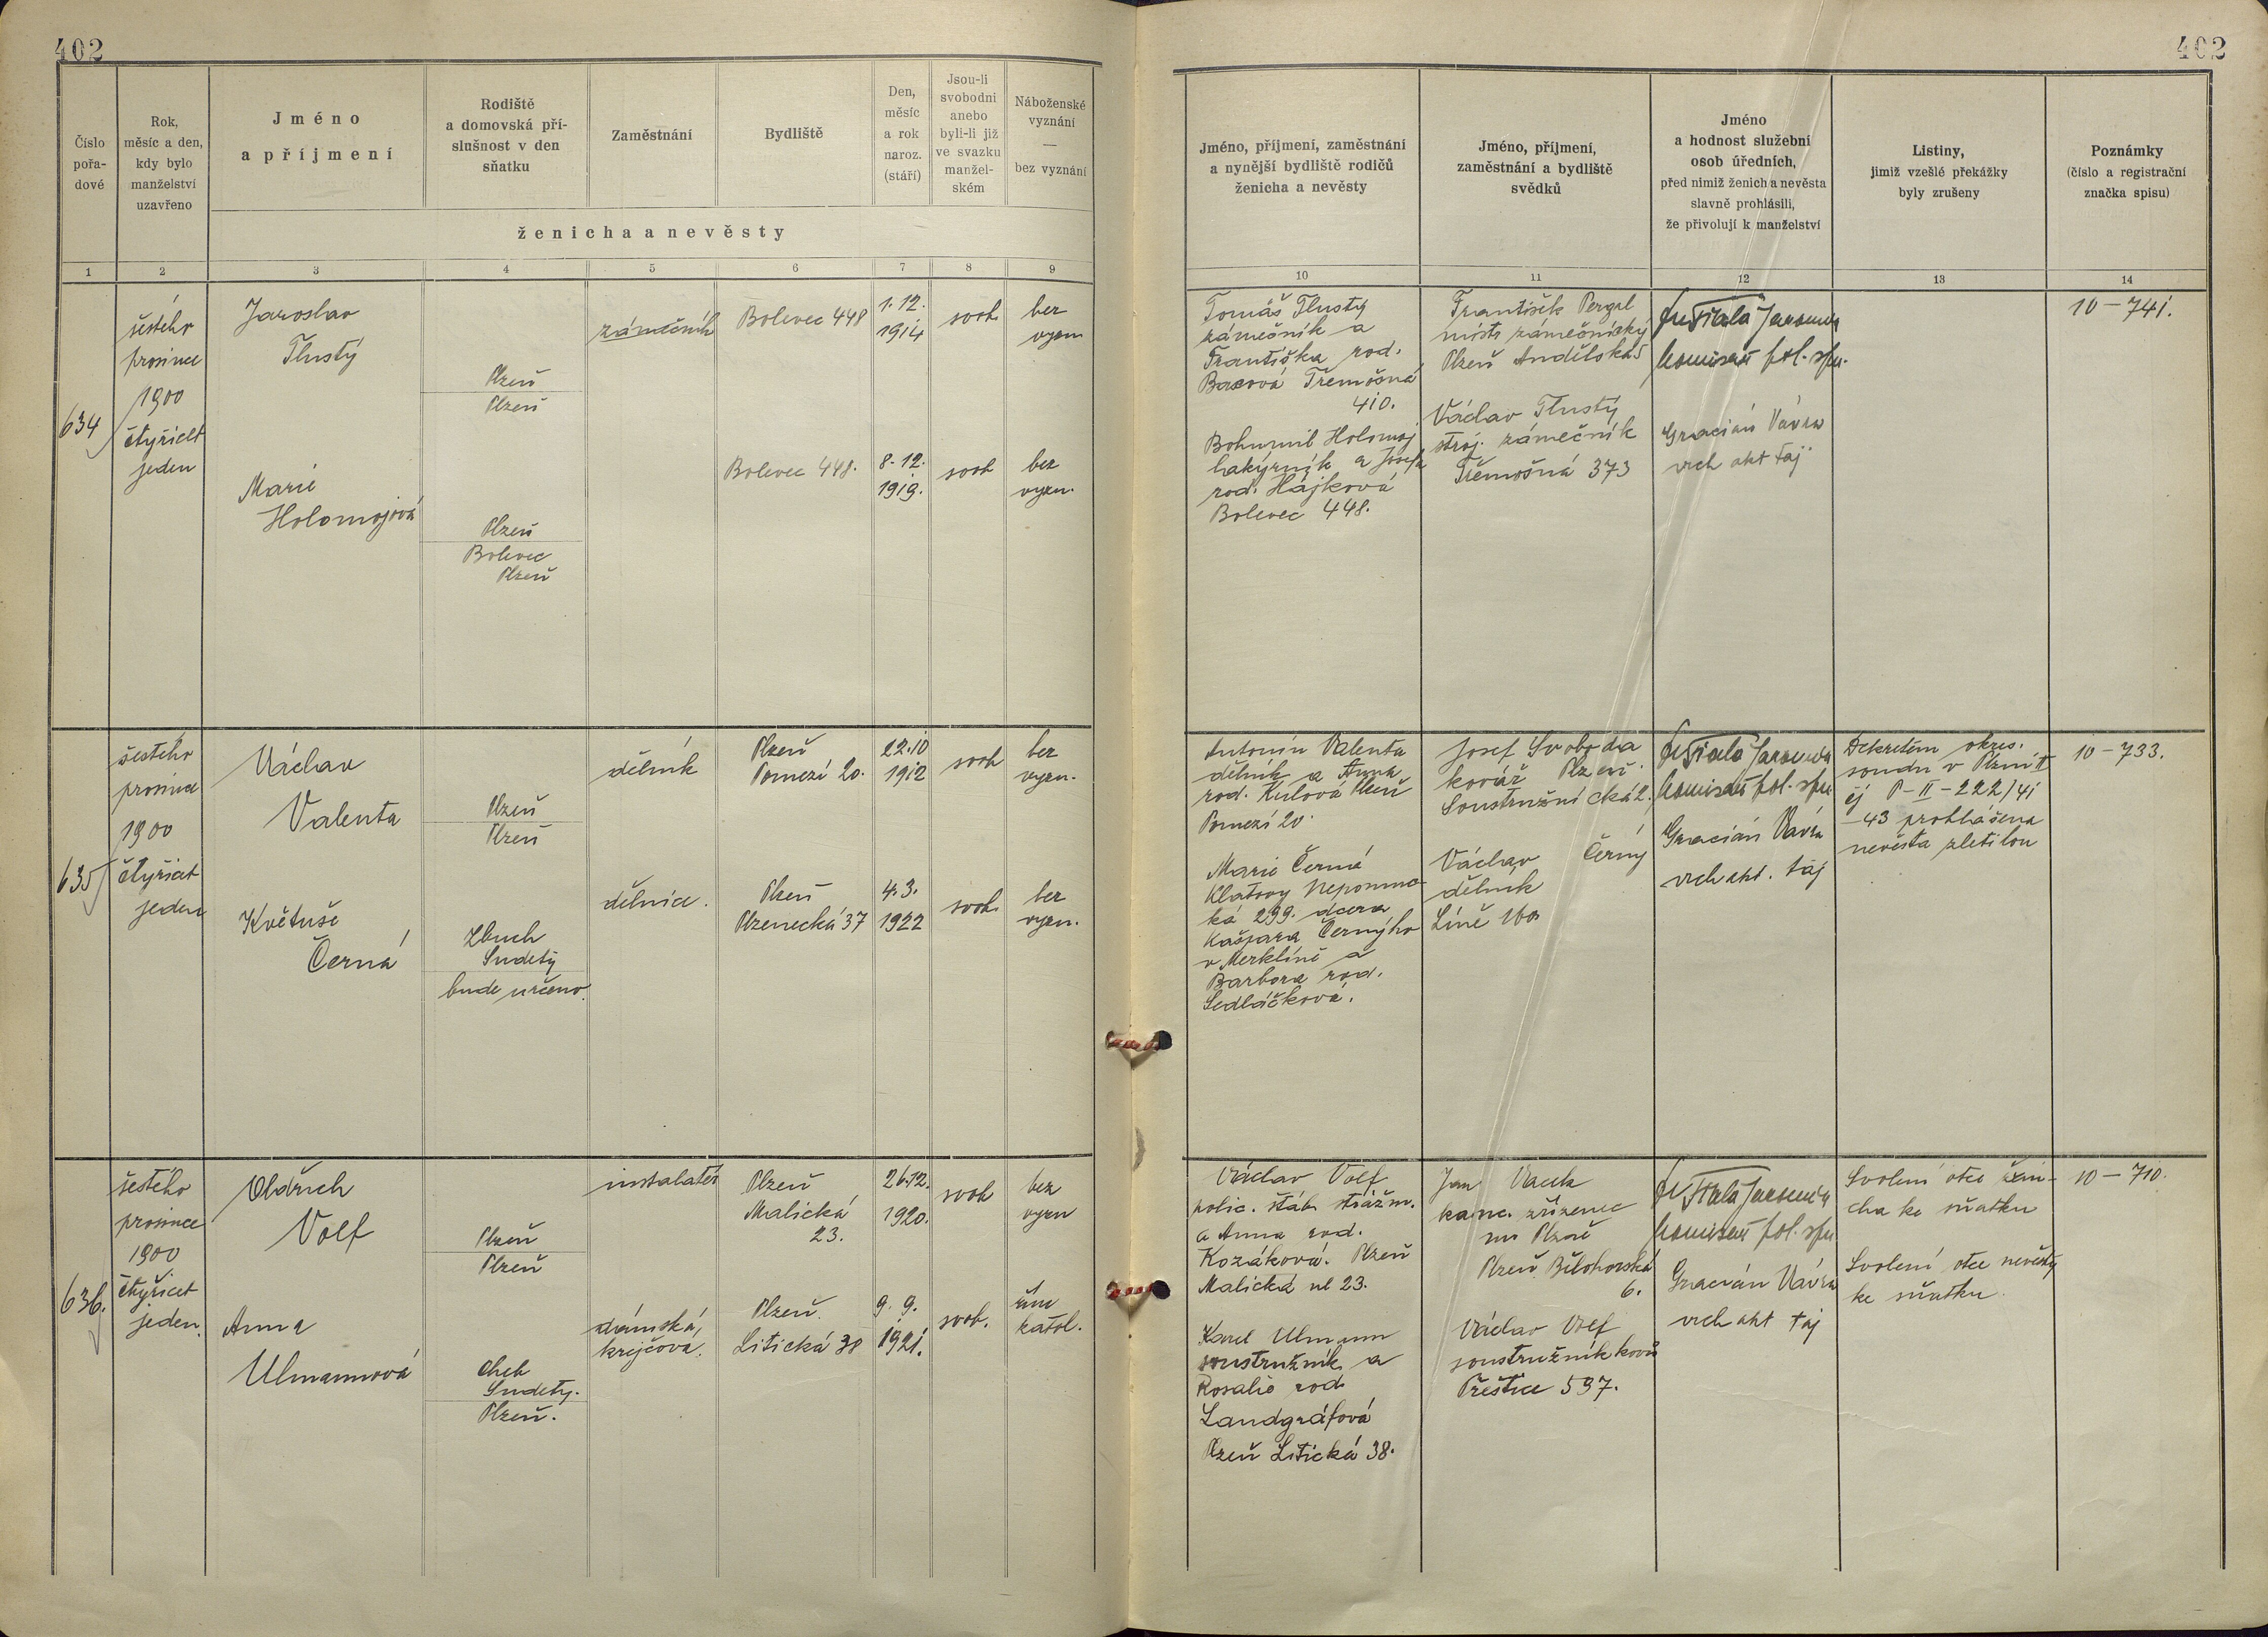 402
402
Číslo
pořa-
dové
Rok,
měsíc a den,
kdy bylo
manželství
uzavřeno
Jméno
a příjmení
Rodiště
a domovská pří-
slušnost v den
sňatku
Zaměstnání
Bydliště
Den,
měsíc
a rok
naroz.
(stáří)
Jsou-li
svobodni
anebo
byli-li již
ve svazku
manžel-
ském
Náboženské
vyznání
—
bez vyznání
ženicha a nevěsty
Jméno, příjmení, zaměstnání
a nynější bydliště rodičů
ženicha a nevěsty
Jméno, příjmení,
zaměstnání a bydliště
svědků
Jméno
a hodnost služební
osob úředních,
před nimiž ženich a nevěsta
slavně prohlásili,
že přivolují k manželství
Listiny,
jimiž vzešlé překážky
byly zrušeny
Poznámky
(číslo a registrační
značka spisu)
1 2 3 4 5 6 7 8 9 10 11 12 13 14
634
šestého
prosince
1900
čtyřicet
jeden
Jaroslav
Tlustý
Plzeň
Plzeň
zámečník
Bolevec 448
1.12.
1914
svob.
bez
vyzn
Marie
Holomojová
Plzeň
Bolevec
Plzeň
Bolevec 448.
8.12.
1919.
svob
bez
vyzn.
Tomáš Tlustý
zámečník a
Františka rod.
Baxová Třemošná
410.
Bohumil Holomoj
lakýrník a Josefa
rod. Hájková
Bolevec 448.
František Pergl
mistr zámečnický
Plzeň Andělská 5
Václav Tlustý
stroj. zámečník
Třemošná 373
Fiala Jaromír
komisař pol. spr.
Gracián Vávra
vrch akt taj.
10 — 741.
635
šestého
prosince
1900
čtyřicet
jeden
Václav
Valenta
Plzeň
Plzeň
dělník
Plzeň
Pomezí 20.
22.10
1912
svob
bez
vyzn.
Květuše
Černá
Zbuch
Sudety
bude určeno.
dělnice.
Plzeň
Plzenecká 37
4.3.
1922
svob.
bez
vyzn.
Antonín Valenta
dělník a Anna
rod. Kulová Plzeň
Pomezí 20.
Marie Černá
Klatovy Nepomuc-
ká 299. dcera
Kašpara Černýho
v Merklíně a
Barbora rod.
Sedláčková.
Josef Svoboda
kovář Plzeň
Soustružnická 2.
Václav Černý
dělník
Líně 160
Fiala Jaromír
komisař pol. spr
Gracián Vávra
vrch akt. taj
Dekretem okres.
soudu v Plzni II
čj P-II-222/41
-43 prohlášena
nevěsta zletilou
10 — 733.
636.
šestého
prosince
1900
čtyřicet
jeden.
Oldřich
Volf
Plzeň
Plzeň
instalatér
Plzeň
Malická
23.
26.12.
1920.
svob
bez
vyzn
Anna
Ulmannová
Cheb
Sudety.
Plzeň.
dámská
krejčová.
Plzeň.
Litická 38
9. 9.
1921.
svob.
řím
katol.
Václav Volf
polic. štáb. strážm.
a Anna rod.
Kozáková. Plzeň
Malická ul 23.
Karel Ulmann
soustružník a
Rosalie rod.
Landgráfová
Plzeň Litická 38.
Jan Vacek
kanc. zřízenec
Plzeň Bělohorská
6.
Václav Volf
soustružník kovů
Přeštice 597.
Fiala Jaromír
komisař pol. spr
Gracián Vávra
vrch akt taj
Svolení otce ženi-
cha ke sňatku
Svolení otce nevěsty
ke sňatku.
10 — 710.